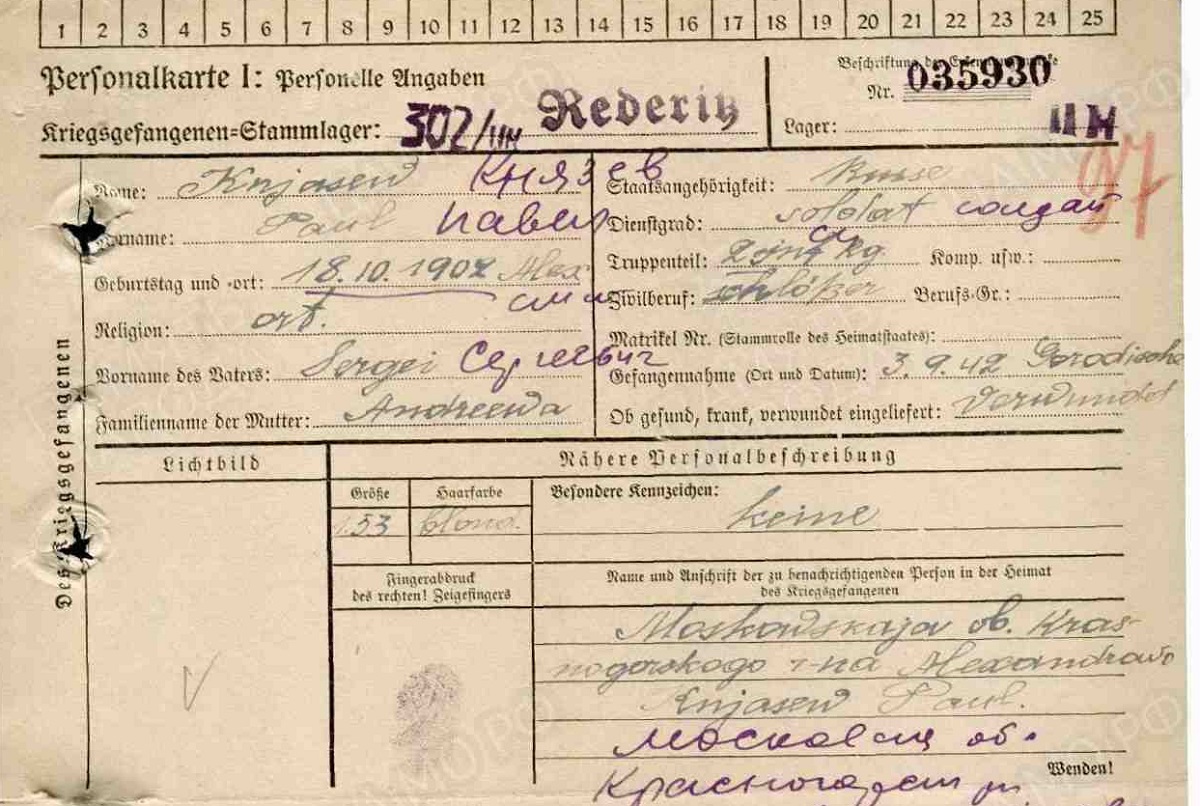 1 2 3 4 5 6 7 8 9 10 11 12 13 14 15 16 17 18 19 20 21 22 23 24 25
Personalkarte I: Personelle Angaben
Beschriftung der Erkennungsmarke
Nr. 035930
Kriegsgefangenen=Stammlager: 302/IIH Rederitz
Lager: II H
97
Name: Knjasew Князев
Staatsangehörigkeit: Russe
Vorname: Paul Павел
Dienstgrad: soldat солдат
Geburtstag und -ort: 18.10.1902 Alex
Truppenteil: Komp. usw.:
Zivilberuf: schlößer Berufs-Gr.:
Religion: ort.
Matrikel Nr. (Stammrolle des Heimatstaates):
Vorname des Vaters: Sergei Сергеевич
Gefangennahme (Ort und Datum): 3.9.42 Gorodische
Familienname der Mutter: Andreewa
Ob gesund, krank, verwundet eingeliefert: verwundet
Des Kriegsgefangenen
Lichtbild
Nähere Personalbeschreibung
Größe Haarfarbe Besondere Kennzeichen:
1.53 blond. keine
Fingerabdruck
des rechten! Zeigefingers
Name und Anschrift der zu benachrichtigenden Person in der Heimat
des Kriegsgefangenen
Moskowskaja ob. Kras-
nogorskogo r-na Alexandrowo
Knjasew Paul.
Московск об.
Wenden!